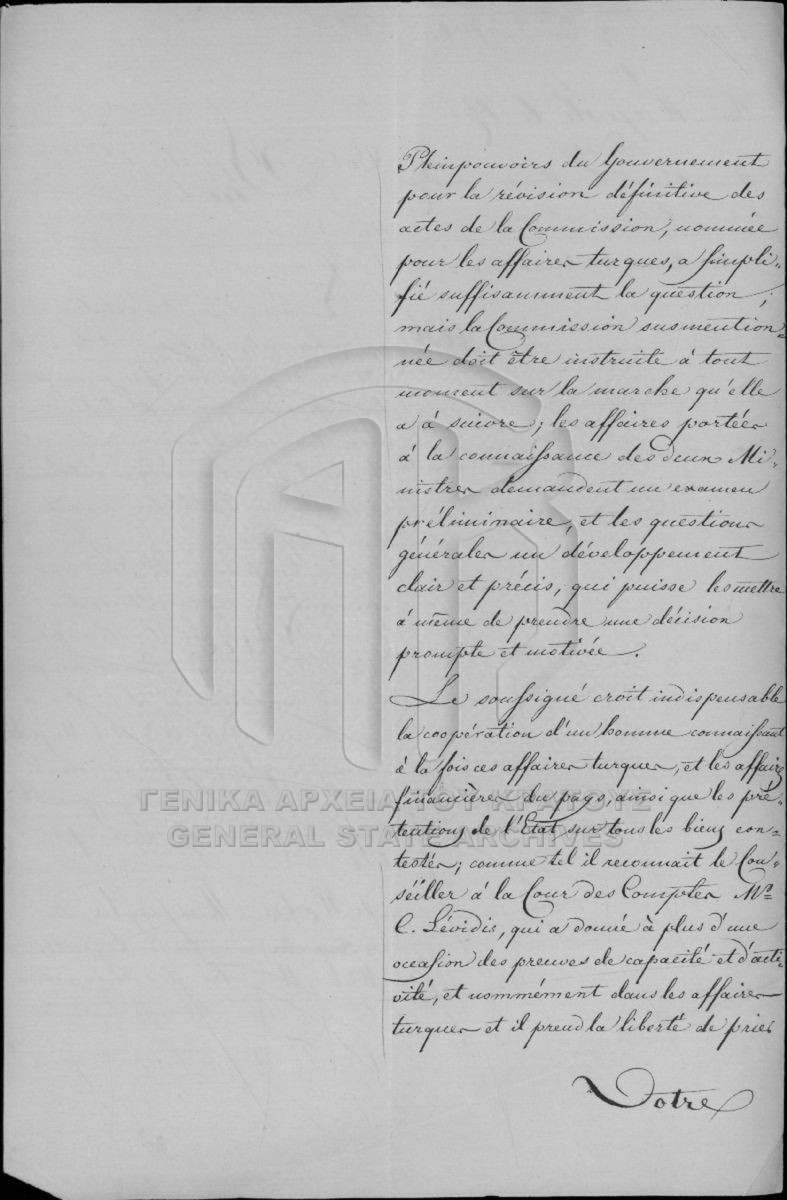 Pleinpouvoirs du Gouvernement
pour la révision définitive des
actes de la Commission, nommée
pour les affaires turques, a simpli-
fié suffisamment la question;
mais la Commission susmention-
née doit être instruite à tout
moment sur la marche qu'elle
a à suivre; les affaires portées
à la connaissance des deux Mi-
nistres demandent un examen
préliminaire, et les questions
générales un développement
clair et précis, qui puisse les mettre
à même de prendre une décision
prompte et motivée.
Le soussigné croit indispensable
la coopération d'un homme connaissant
à la fois ces affaires turques, et les affaires
financières du pays, ainsi que les pré-
tentions de l'Etat sur tous les biens con-
testés; comme tel il reconnait le Con-
séiller à la Cour des Comptes Mr.
C. Lévidis, qui a donné à plus d'une
occasion des preuves de capacité et d'acti-
vité, et nommément dans les affaires
turques et il prend la liberté de prier
Votre
ΓΕΝΙΚΑ ΑΡΧΕΙΑ ΤΟΥ ΚΡΑΤΟΥΣ
GENERAL STATE ARCHIVES